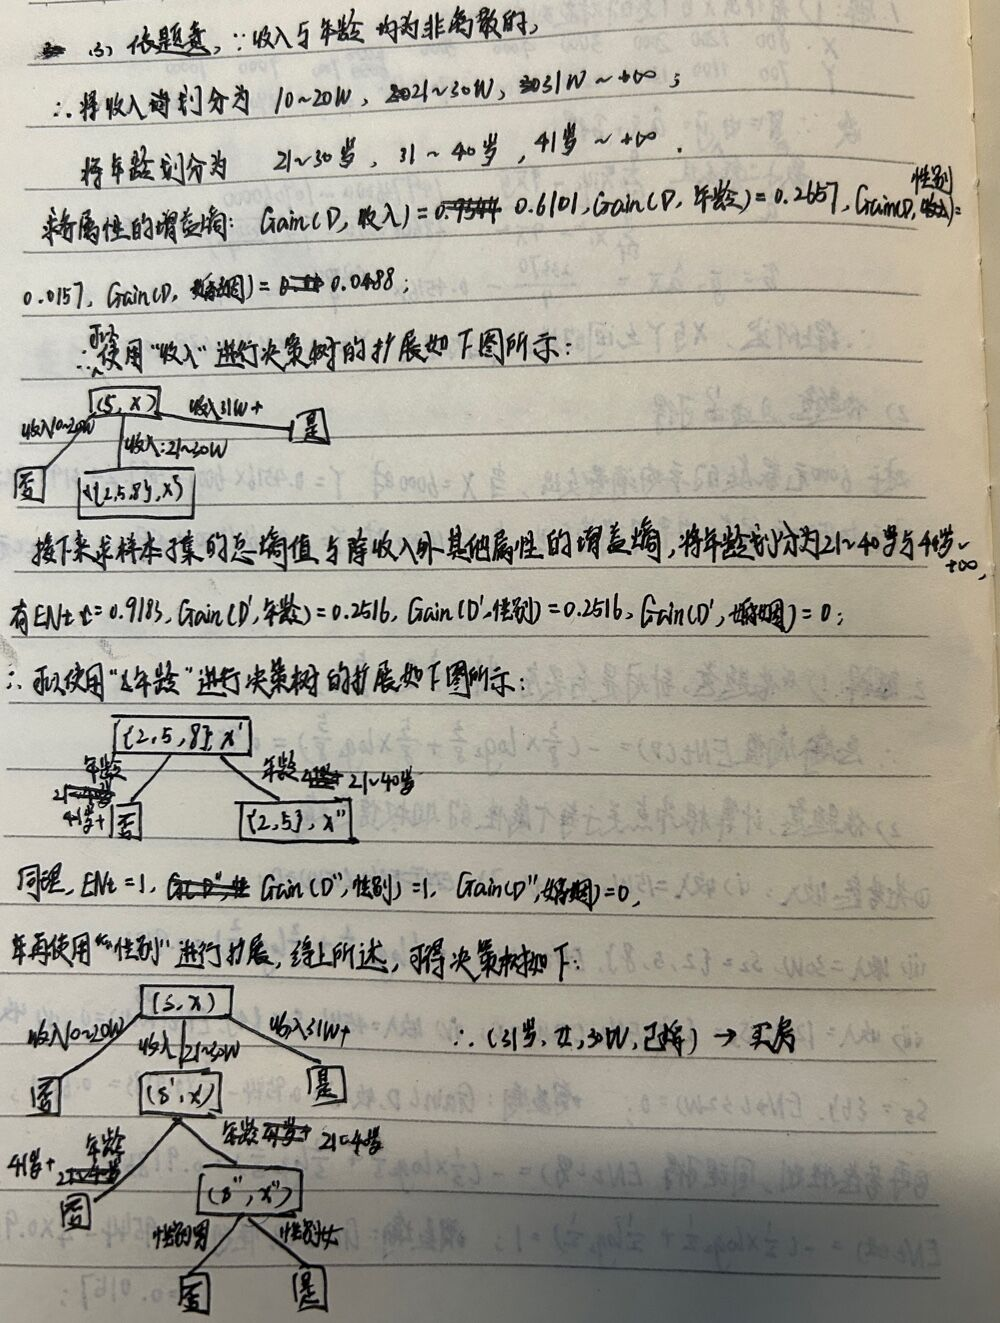 (3) 依题意，∵收入与年龄 均为非离散的，
∴将收入划分为 10~20W，21~30W，31W~+∞；
将年龄划分为 21~30岁，31~40岁，41岁~+∞．
求各属性的增益熵：Gain(D, 收入)= 0.6101, Gain(D, 年龄)=0.2657, Gain(D, 性别)=
0.0157, Gain(D, 婚姻)= 0.0488；
∴可以使用“收入”进行决策树的扩展如下图所示：
(S, X)
收入10~20W
收入31W+
收入:21~30W
否
是
({2,5,8}, X')
接下来求样本子集的总熵值与除收入外其他属性的增益熵，将年龄划分为21~40岁与41岁~+∞，
有ENt=0.9183, Gain(D',年龄)=0.2516, Gain(D',性别)=0.2516, Gain(D',婚姻)=0；
∴可以使用“年龄”进行决策树的扩展如下图所示：
({2,5,8}, X'
年龄
41岁+
年龄 21~40岁
否
({2,5}, X"
同理，ENt=1, Gain(D",性别)=1, Gain(D",婚姻)=0,
再使用“性别”进行扩展，综上所述，可得决策树如下：
(S, X)
收入10~20W
收入 21~30W
收入31W+
否
(S', X')
是
∴ (31岁, 女, 30W, 已婚) → 买房
年龄
41岁+
年龄 21~40岁
否
(S", X")
性别男
性别女
否
是